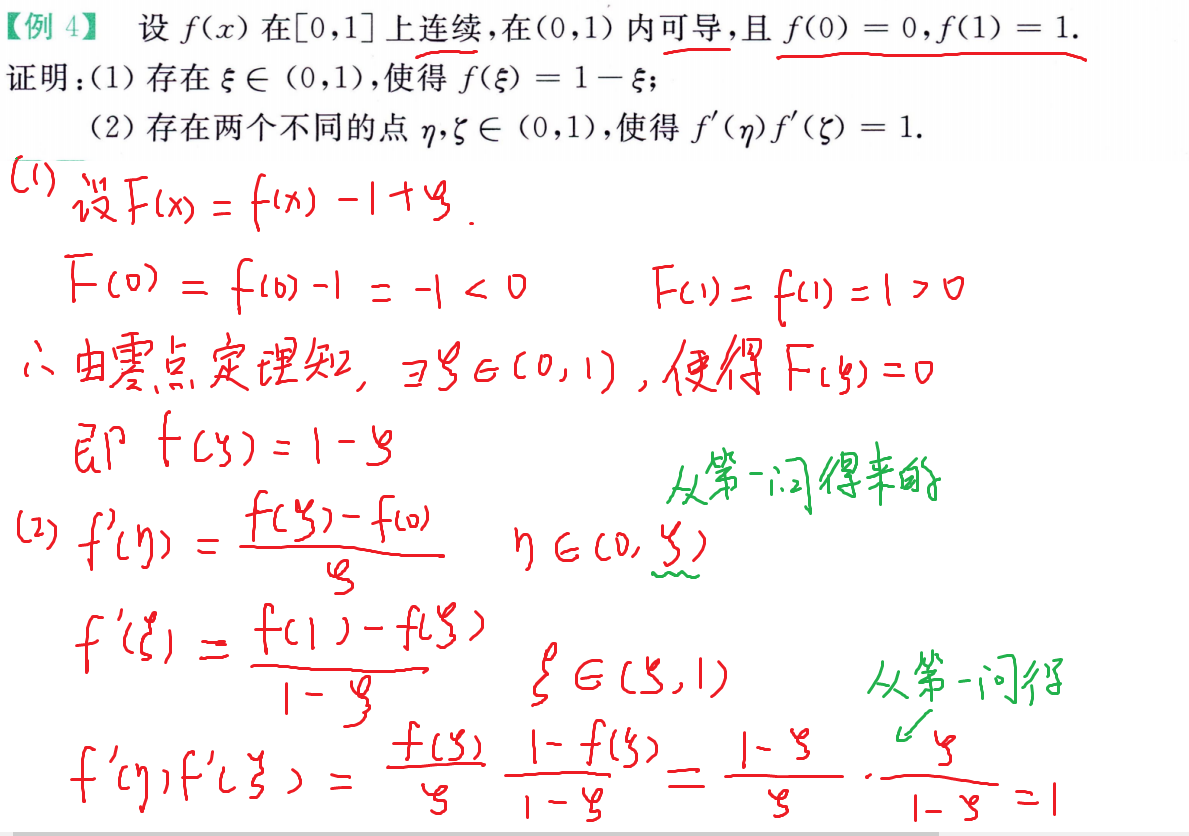 【例 4】 设 f(x) 在[0,1]上连续,在(0,1)内可导,且 f(0) = 0,f(1) = 1.
证明:(1) 存在 ξ ∈ (0,1),使得 f(ξ) = 1 − ξ;
(2) 存在两个不同的点 η,ζ ∈ (0,1),使得 f′(η)f′(ζ) = 1.
(1) 设 F(x) = f(x) − 1 + ξ.
F(0) = f(0) − 1 = −1 < 0 F(1) = f(1) = 1 > 0
∴ 由零点定理知, ∃ξ∈(0,1), 使得 F(ξ) = 0
即 f(ξ) = 1 − ξ
从第一问得来的
(2) f′(η) = \frac{f(ξ) − f(0)}{ξ} η ∈ (0, ξ)
f′(ζ) = \frac{f(1) − f(ξ)}{1 − ξ} ζ ∈ (ξ, 1)
从第一问得
f′(η)f′(ζ) = \frac{f(ξ)}{ξ} \frac{1 − f(ξ)}{1 − ξ} = \frac{1 − ξ}{ξ} · \frac{ξ}{1 − ξ} = 1